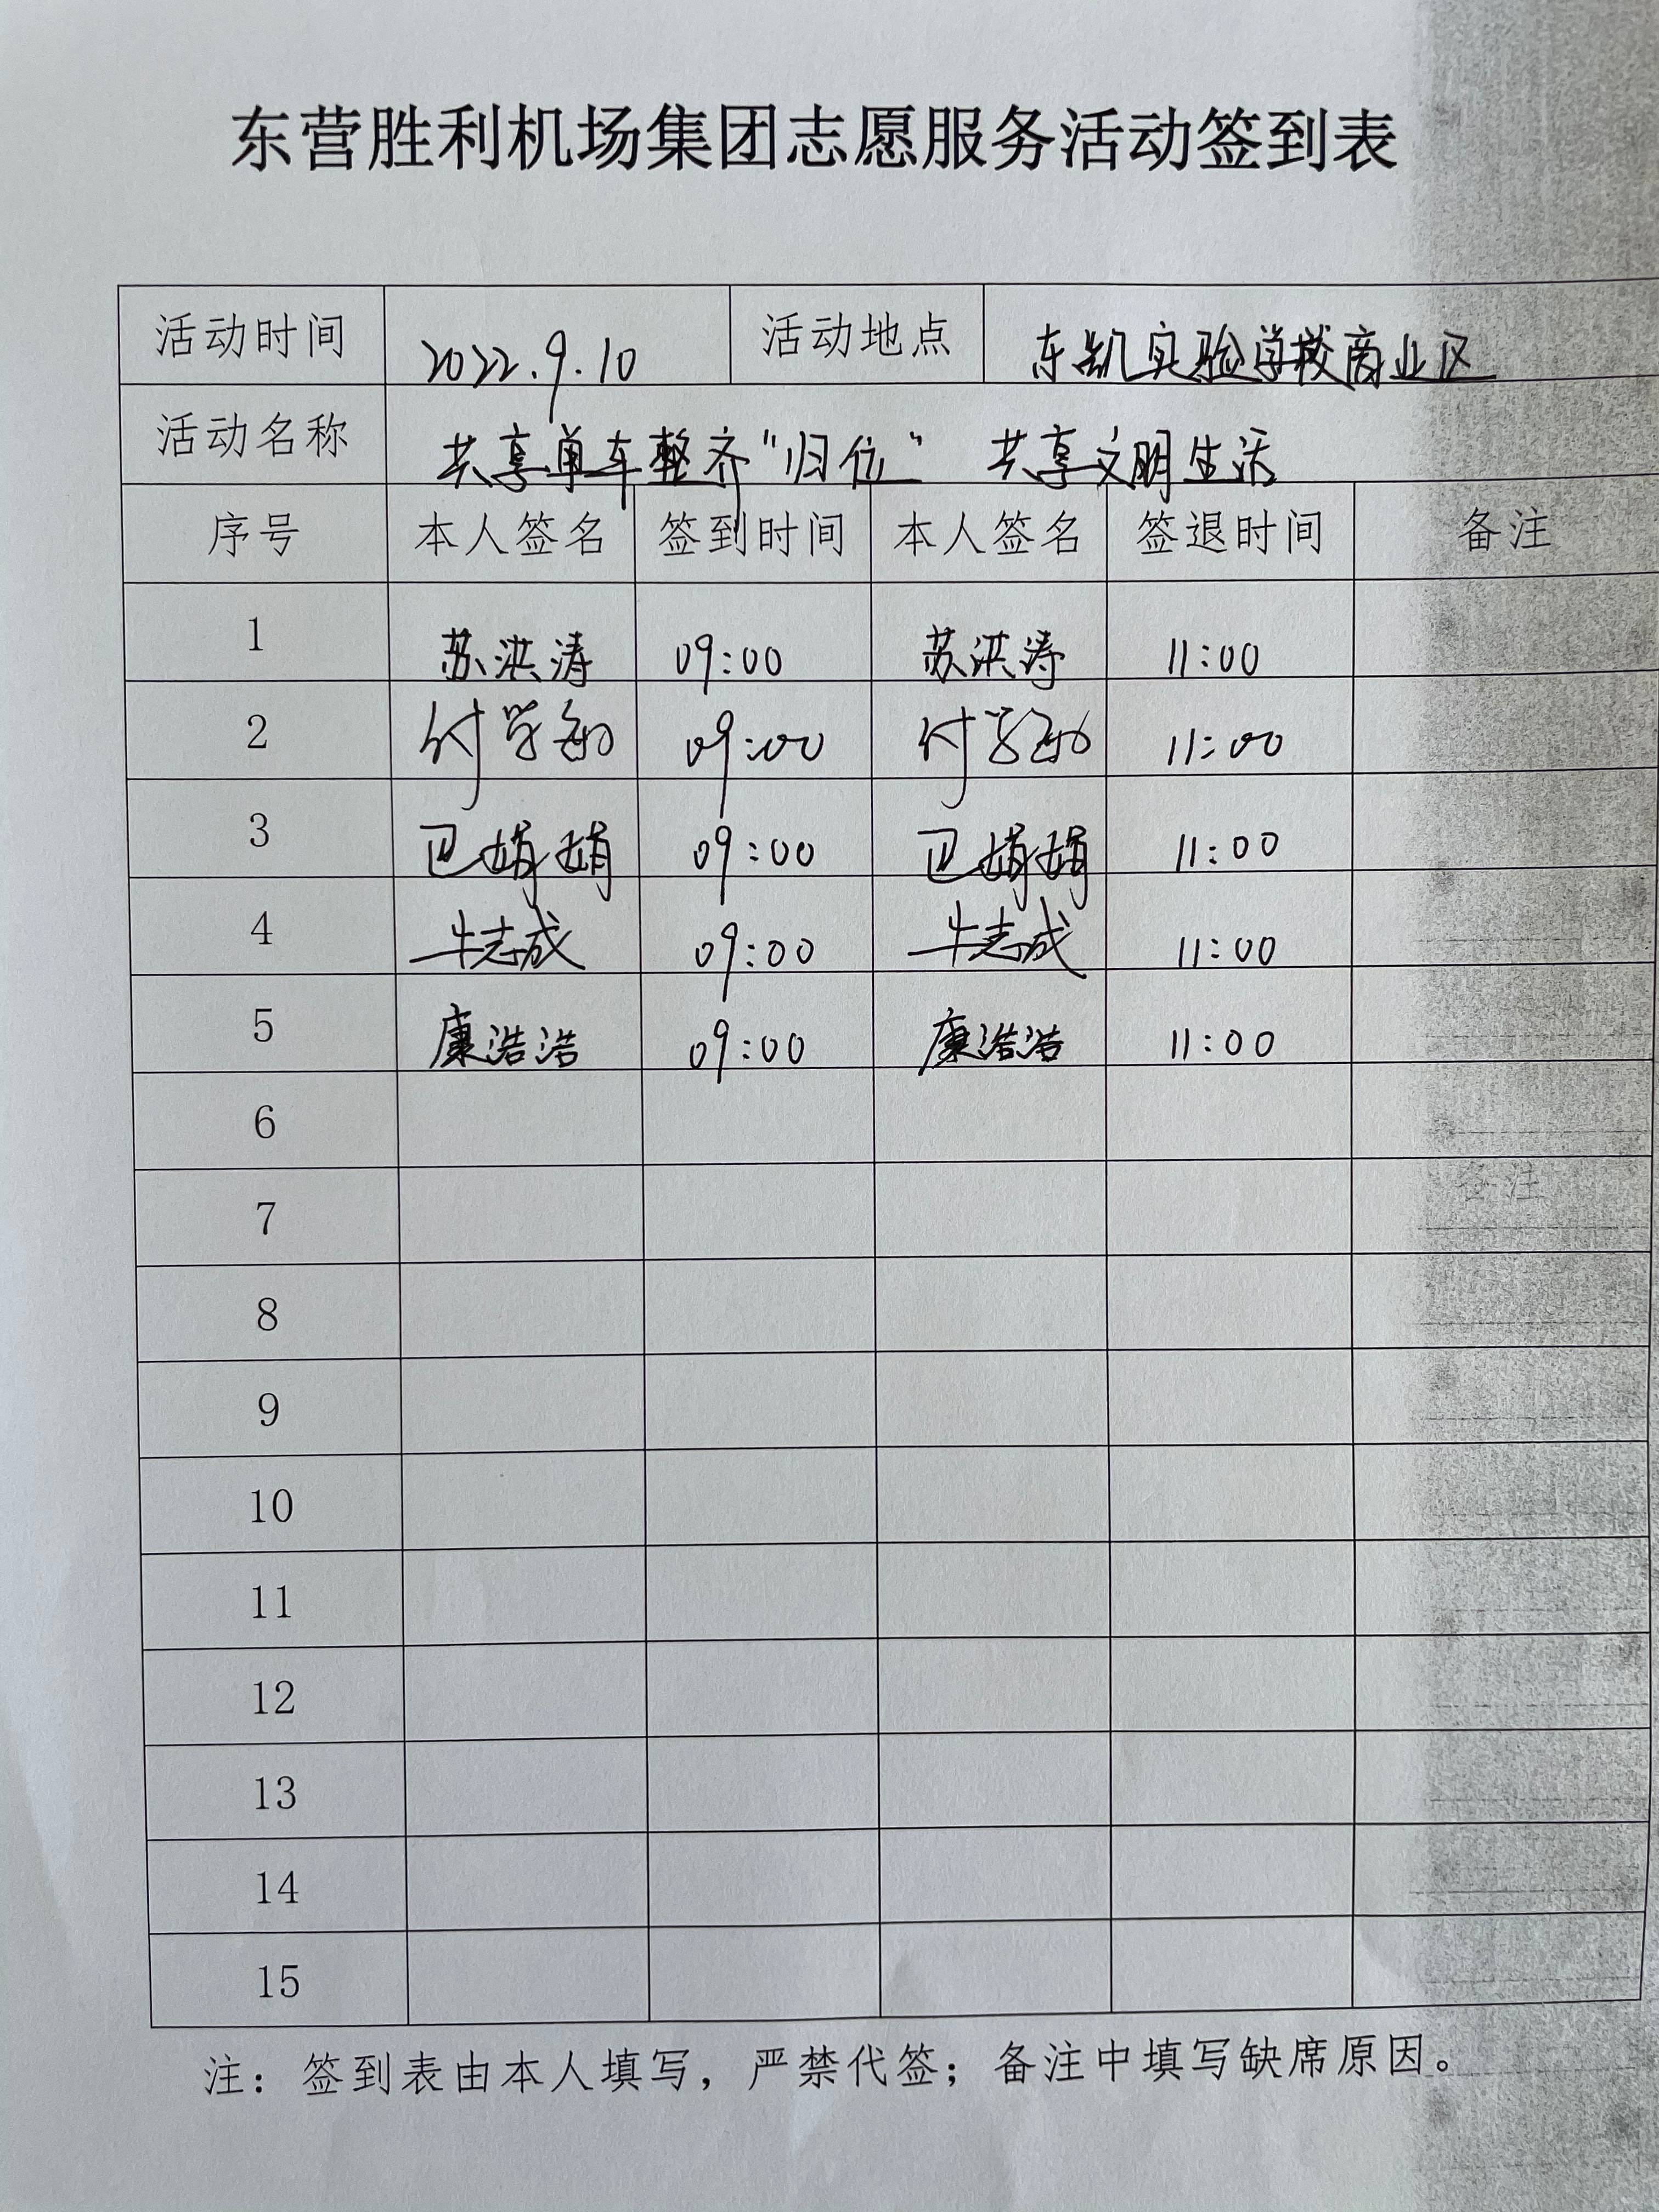 东营胜利机场集团志愿服务活动签到表
活动时间 2022.9.10 活动地点 东凯实验学校商业区
活动名称 共享单车整齐“归位” 共享文明生活
序号 本人签名 签到时间 本人签名 签退时间 备注
1 苏洪涛 09:00 苏洪涛 11:00
2 付学敏 09:00 付学敏 11:00
3 巴娟娟 09:00 巴娟娟 11:00
4 牛志成 09:00 牛志成 11:00
5 康浩浩 09:00 康浩浩 11:00
6
7 备注
8
9
10
11
12
13
14
15
注：签到表由本人填写，严禁代签；备注中填写缺席原因。